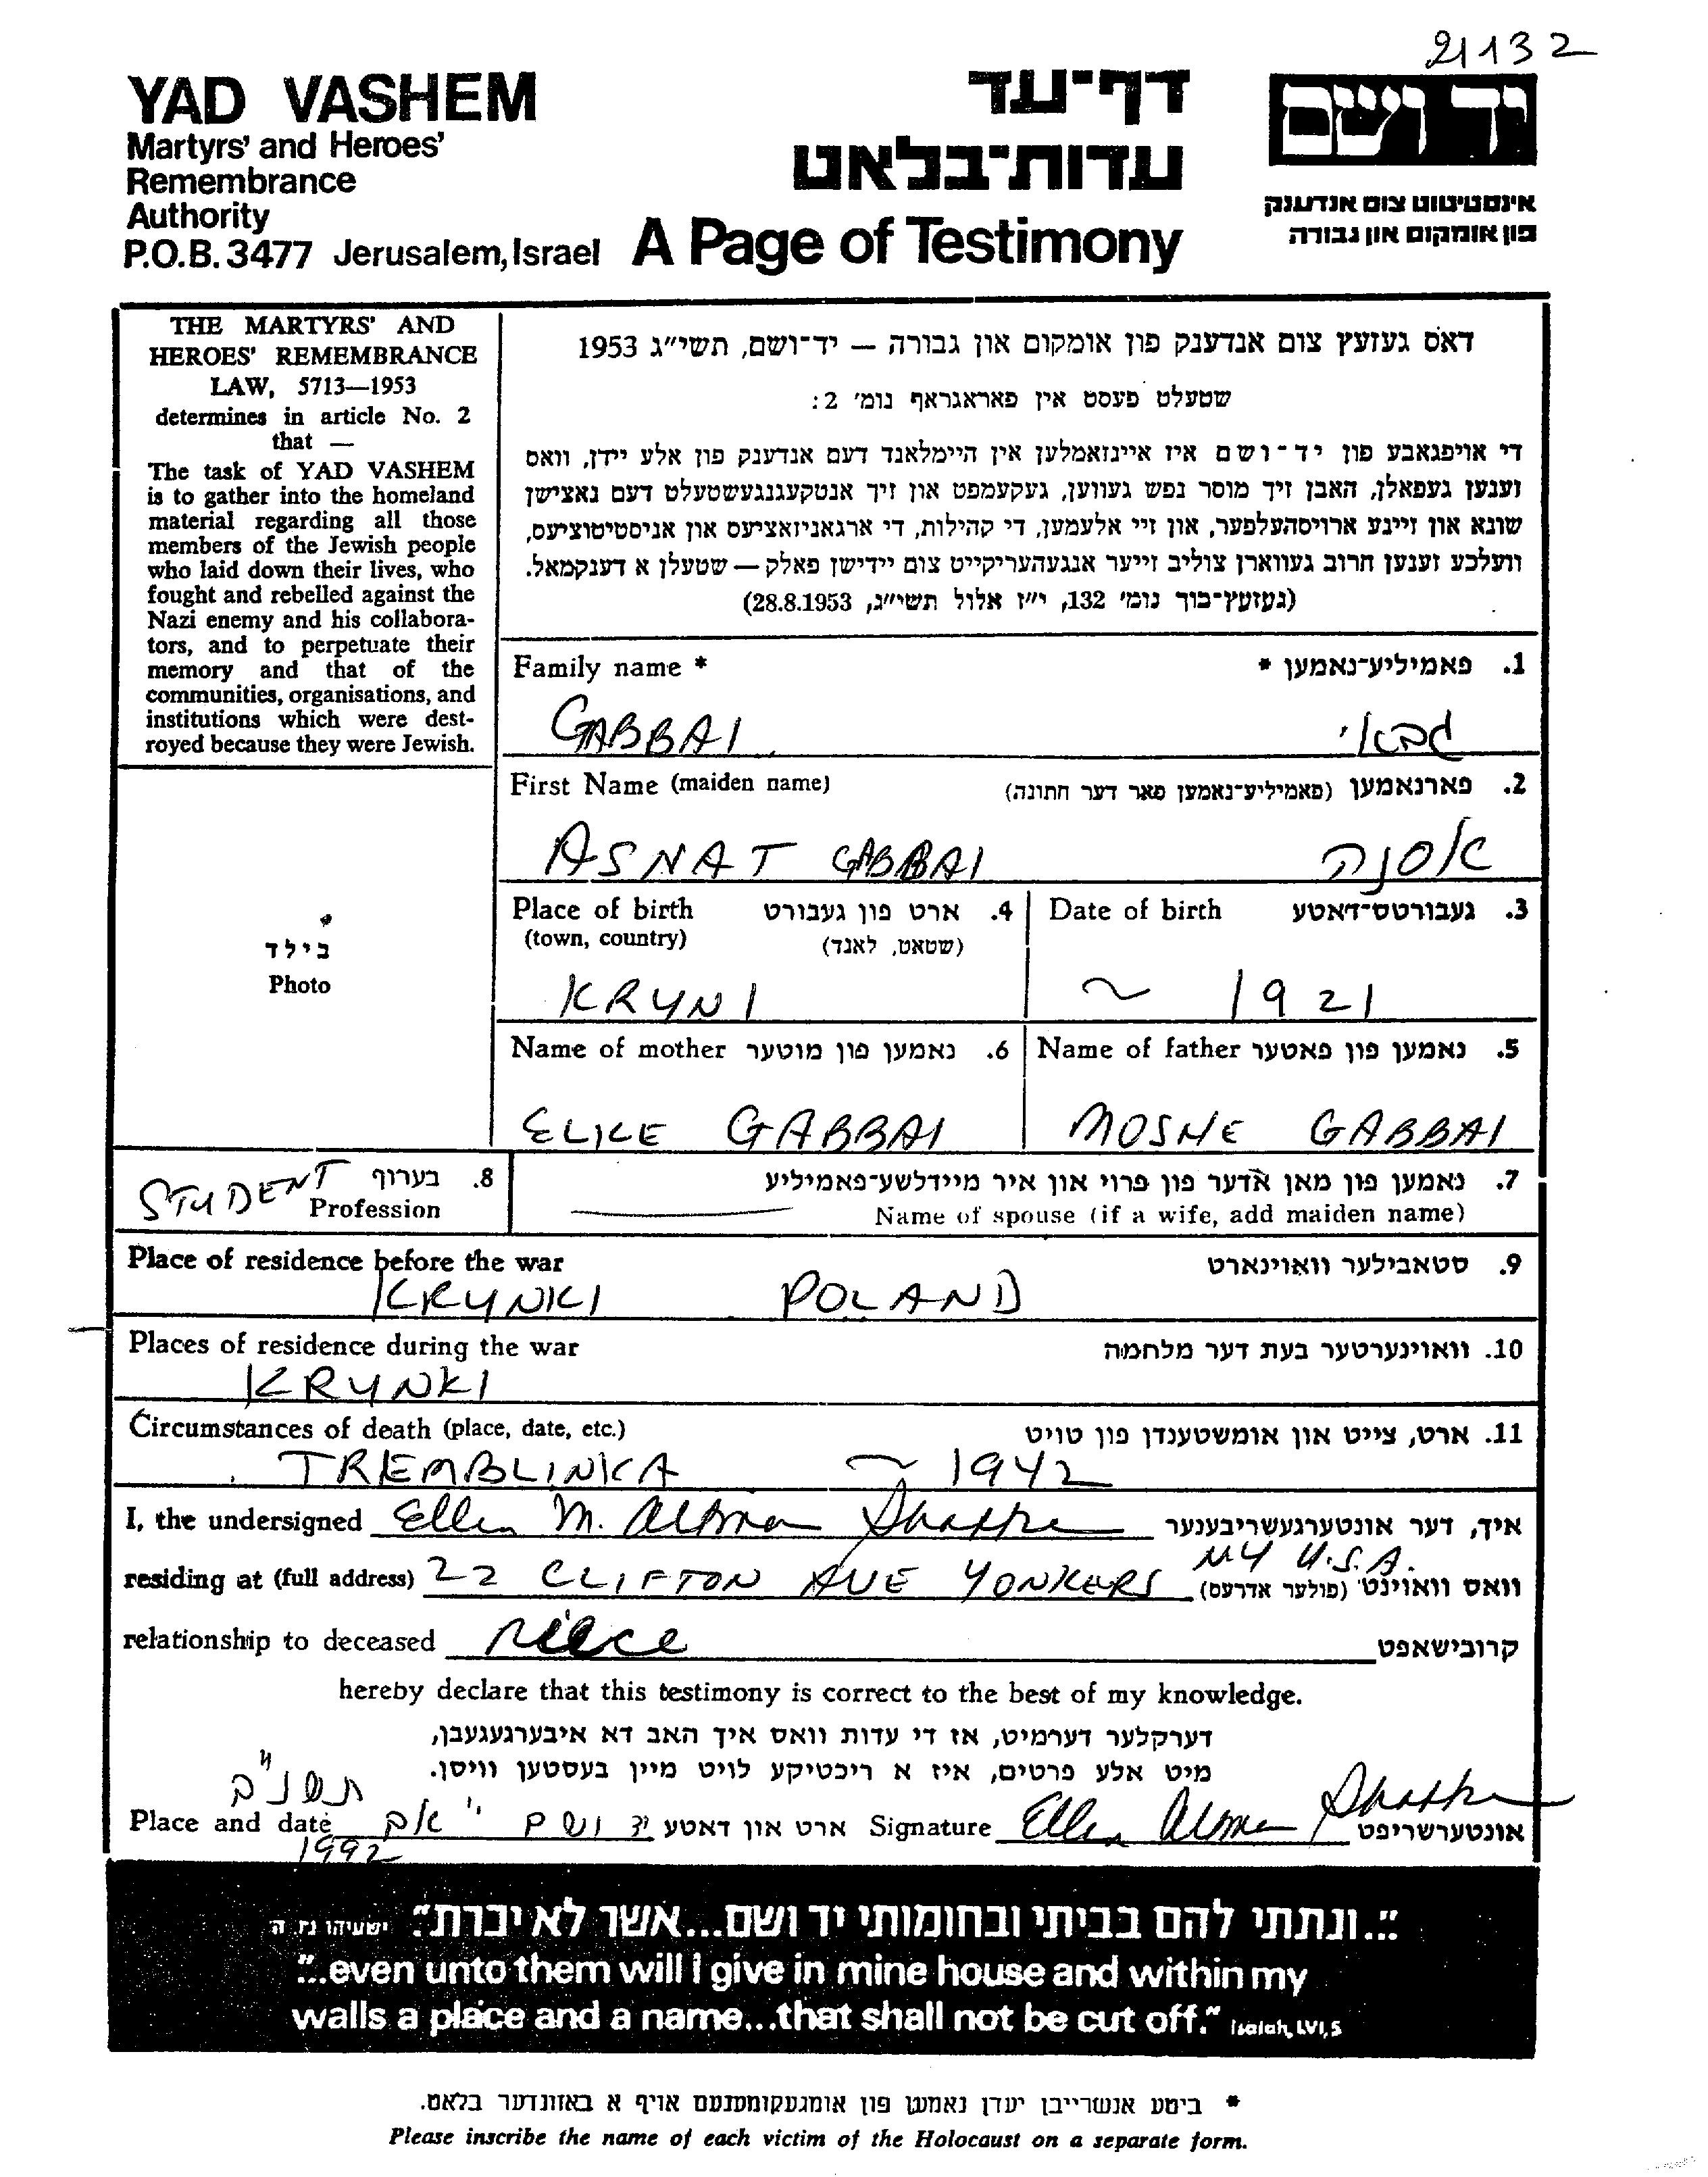 21132
YAD VASHEM
Martyrs' and Heroes'
Remembrance
Authority
P.O.B. 3477 Jerusalem, Israel
דף-עד
עדות-בלאט
A Page of Testimony
יד ושם
אינסטיטוט צום אנדענק
פון אומקום און גבורה
THE MARTYRS' AND
HEROES' REMEMBRANCE
LAW, 5713—1953
determines in article No. 2
that —
The task of YAD VASHEM
is to gather into the homeland
material regarding all those
members of the Jewish people
who laid down their lives, who
fought and rebelled against the
Nazi enemy and his collabora-
tors, and to perpetuate their
memory and that of the
communities, organisations, and
institutions which were dest-
royed because they were Jewish.
דאס געזעץ צום אנדענק פון אומקום און גבורה — יד-ושם, תשי"ג 1953
שטעלט פעסט אין פאראגראף נומ' 2:
די אויפגאבע פון יד-ושם איז איינזאמלען אין היימלאנד דעם אנדענק פון אלע יידן, וואס
זענען געפאלן, האבן זיך מוסר נפש געווען, געקעמפט און זיך אנטקעגנגעשטעלט דעם נאצישן
שונא און זיינע ארויסהעלפער, און זיי אלעמען, די קהילות, די ארגאניזאציעס און אניסטיטוציעס,
וועלכע זענען חרוב געווארן צוליב זייער אנגעהעריקייט צום יידישן פאלק — שטעלן א דענקמאל.
(געזעץ-בוך נומ' 132, י"ז אלול תשי"ג, 28.8.1953)
Family name * 1. פאמיליע-נאמען *
GABBAI גבאי
First Name (maiden name) 2. פארנאמען (פאמיליע-נאמען פאר דער חתונה)
ASNAT GABBAI אסנה
Place of birth 4. ארט פון געבורט Date of birth 3. געבורטס-דאטע
(town, country) (שטאט, לאנד)
KRYNI ~ 1921
בילד
Photo
Name of mother 6. נאמען פון מוטער Name of father 5. נאמען פון פאטער
ELICE GABBAI MOSHE GABBAI
STUDENT 8. בערוף
Profession
7. נאמען פון מאן אדער פון פרוי און איר מיידלשע-פאמיליע
Name of spouse (if a wife, add maiden name)
Place of residence before the war 9. סטאבילער וואוינארט
KRYNKI POLAND
Places of residence during the war 10. וואוינערטער בעת דער מלחמה
KRYNKI
Circumstances of death (place, date, etc.) 11. ארט, צייט און אומשטענדן פון טויט
TREMBLINKA ~ 1942
I, the undersigned Ellen M. Altman Shapke איך, דער אונטערגעשריבענער
NY U.S.A.
residing at (full address) 22 CLIFTON AVE YONKERS וואס וואוינט (פולער אדרעס)
relationship to deceased niece קרובישאפט
hereby declare that this testimony is correct to the best of my knowledge.
דערקלער דערמיט, אז די עדות וואס איך האב דא איבערגעגעבן,
מיט אלע פרטים, איז א ריכטיקע לויט מיין בעסטען וויסן.
תשנ"ב
Place and date יד ושם י"אב ארט און דאטע Signature Ellen Altman Shapke אונטערשריפט
1992
"...ונתתי להם בביתי ובחומותי יד ושם...אשר לא יכרת" ישעיהו נו ה
"...even unto them will I give in mine house and within my
walls a place and a name...that shall not be cut off." Isaiah, LVI,5
* ביטע אנשרייבן יעדן נאמען פון אומגעקומענעם אויף א באזונדער בלאט.
Please inscribe the name of each victim of the Holocaust on a separate form.